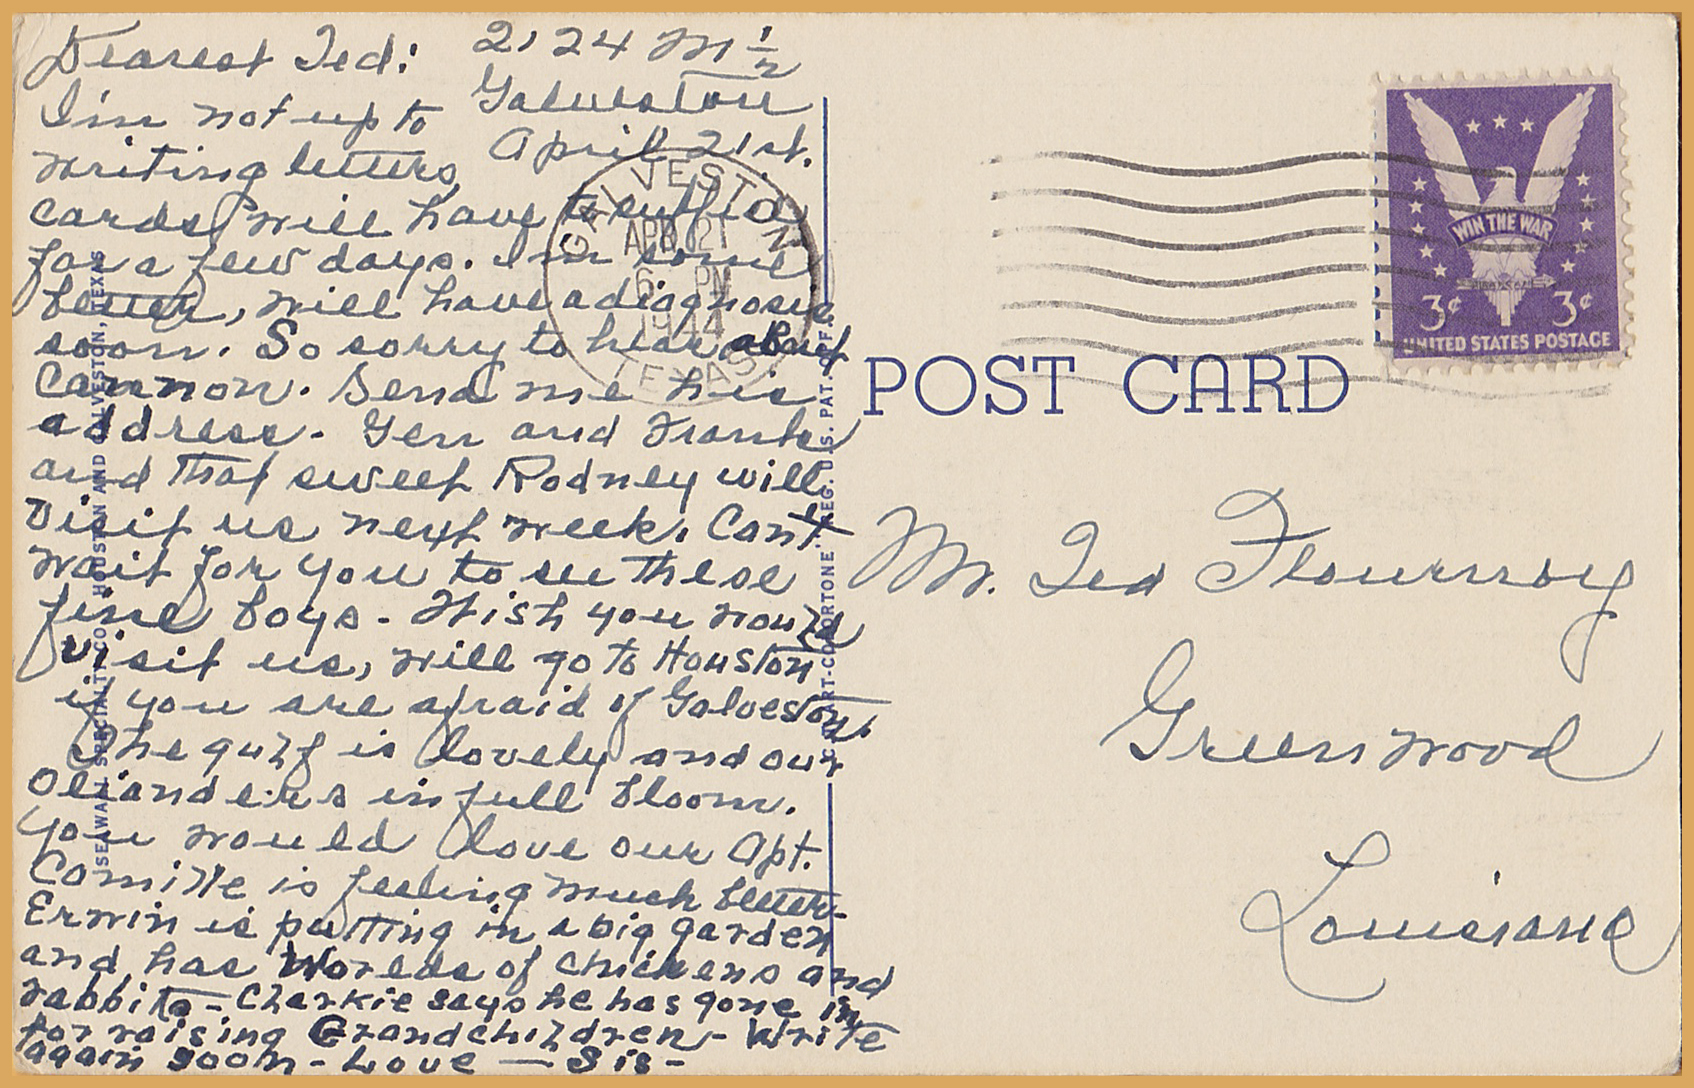 2124 M ½
Galveston
April 21st.
Dearest Ted:
I'm not up to
writing letters,
cards will have to suffice
for a few days. I'm some
better, will have a diagnosis
soon. So sorry to hear about
Cannon. Send me his
address. Gen and Frank
and that sweet Rodney will
visit us next week. Can't
wait for you to see these
fine boys. Wish you would
visit us, will go to Houston
if you are afraid of Galveston.
The gulf is lovely and our
Olianders in full bloom.
You would love our Apt.
Camille is feeling much better-
Erwin is putting in a big garden
and has Worlds of chickens and
rabbits - Charkie says he has gone in
for raising Grandchildren - Write
again soon - Love — Sis -
GALVESTON
APR 21
6 PM
1944
TEXAS
WIN THE WAR
3¢ 3¢
UNITED STATES POSTAGE
POST CARD
Mr. Ted Flournoy
Greenwood
Louisiana
SEAWALL SPECIALTY CO., HOUSTON AND GALVESTON, TEXAS
"C.T. ART-COLORTONE" REG. U.S. PAT. OFF.